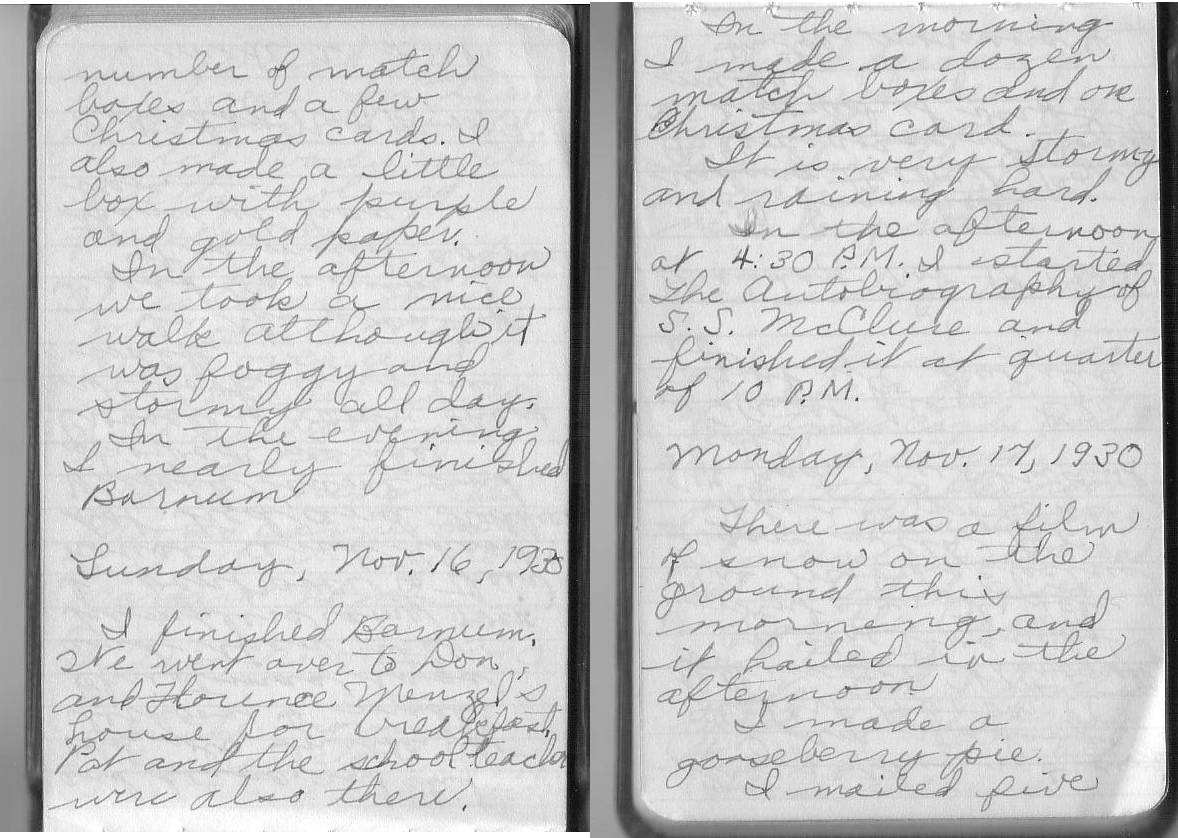 number of match
boxes and a few
Christmas cards. I
also made a little
box with purple
and gold paper.
In the afternoon
we took a nice
walk although it
was foggy and
stormy all day.
In the evening
I nearly finished
Barnum
Sunday, Nov. 16, 1930
I finished Barnum.
We went over to Don
and Florence Menzel's
house for breakfast.
Pat and the schoolteacher
were also there.
In the morning
I made a dozen
match boxes and one
Christmas card.
It is very stormy
and raining hard.
In the afternoon
at 4:30 P.M. I started
The Autobiography of
S. S. McClure and
finished it at quarter
of 10 P.M.
Monday, Nov. 17, 1930
There was a film
of snow on the
ground this
morning, and
it hailed in the
afternoon
I made a
gooseberry pie.
I mailed five